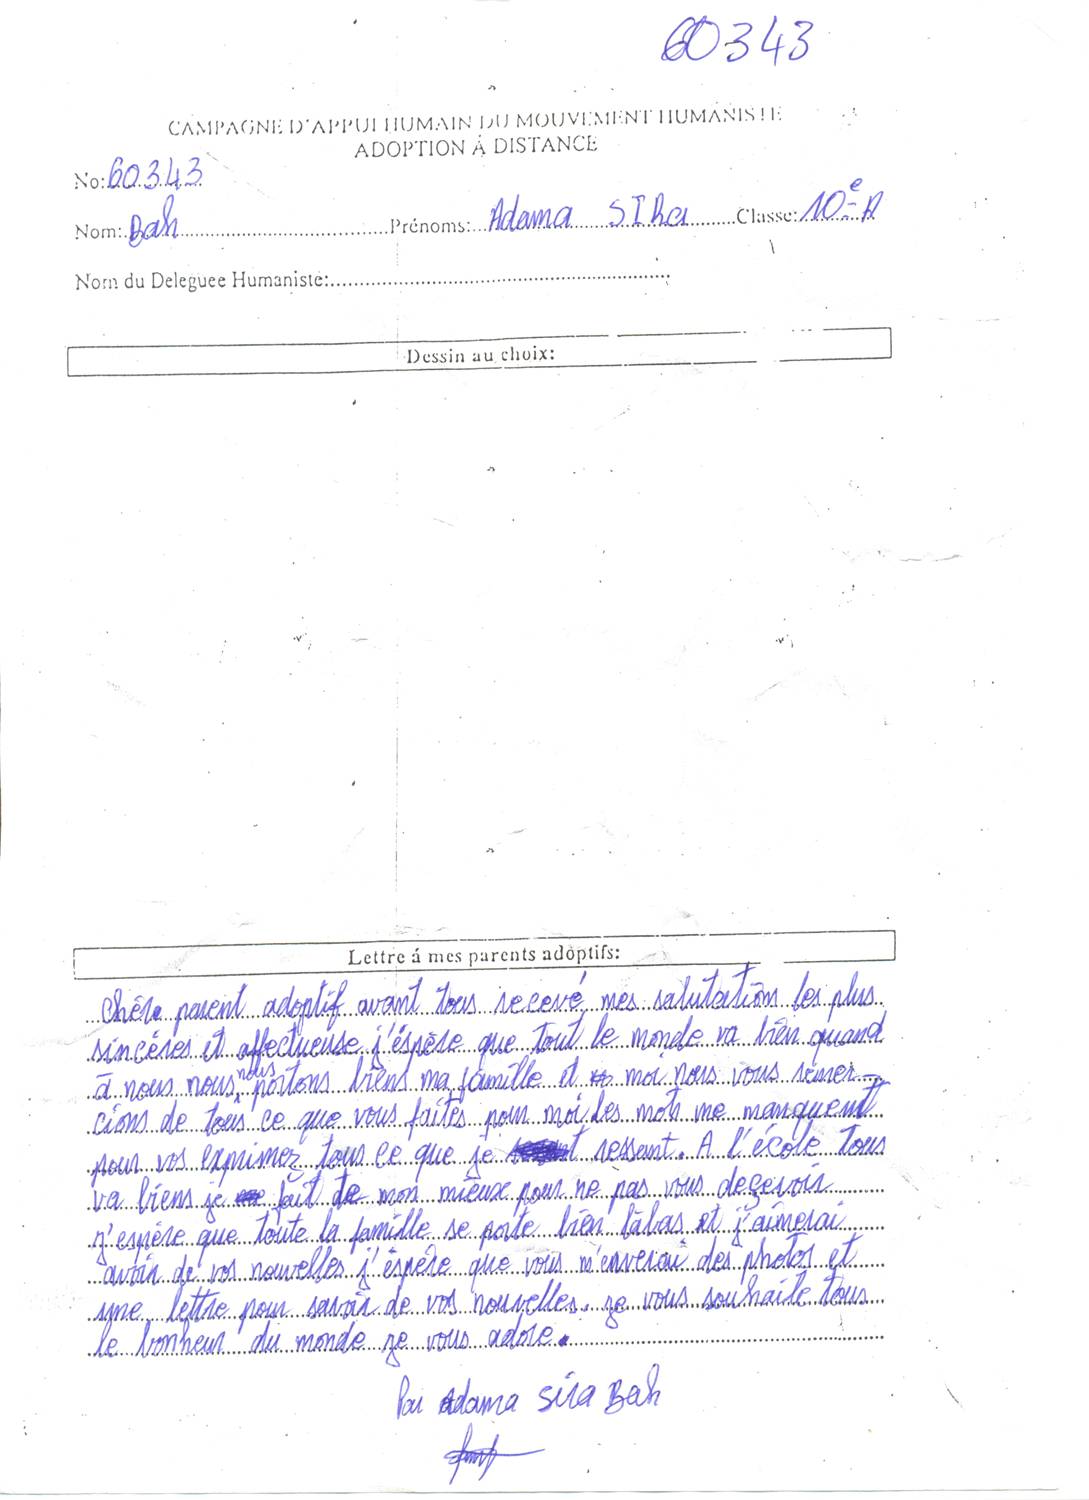 60343
CAMPAGNE D'APPUI HUMAIN DU MOUVEMENT HUMANISTE
ADOPTION Á DISTANCE
No: 60343
Nom: Bah Prénoms: Adama SIRa Classe: 10e A
Nom du Deleguee Humaniste:
Dessin au choix:
Lettre á mes parents adoptifs:
Chére parent adoptif avant tous recevé mes salutation les plus
sincéres et affectueuse j'éspère que tout le monde va bien quand
à nous nous nous portons biens ma famille et moi nous vous remer-
cions de tous ce que vous faites pour moi les mots me manquent
pour vos exprimez tous ce que je ressant. A l'école tous
va biens je fait de mon mieux pour ne pas vous deçevoir
j'espére que toute la famille se porte bien làbas et j'aimerai
avoir de vos nouvelles j'éspére que vous m'enverai des photos et
une lettre pour savoir de vos nouvelles. je vous souhaite tous
le bonheur du monde je vous adore.
Par Adama Sira Bah